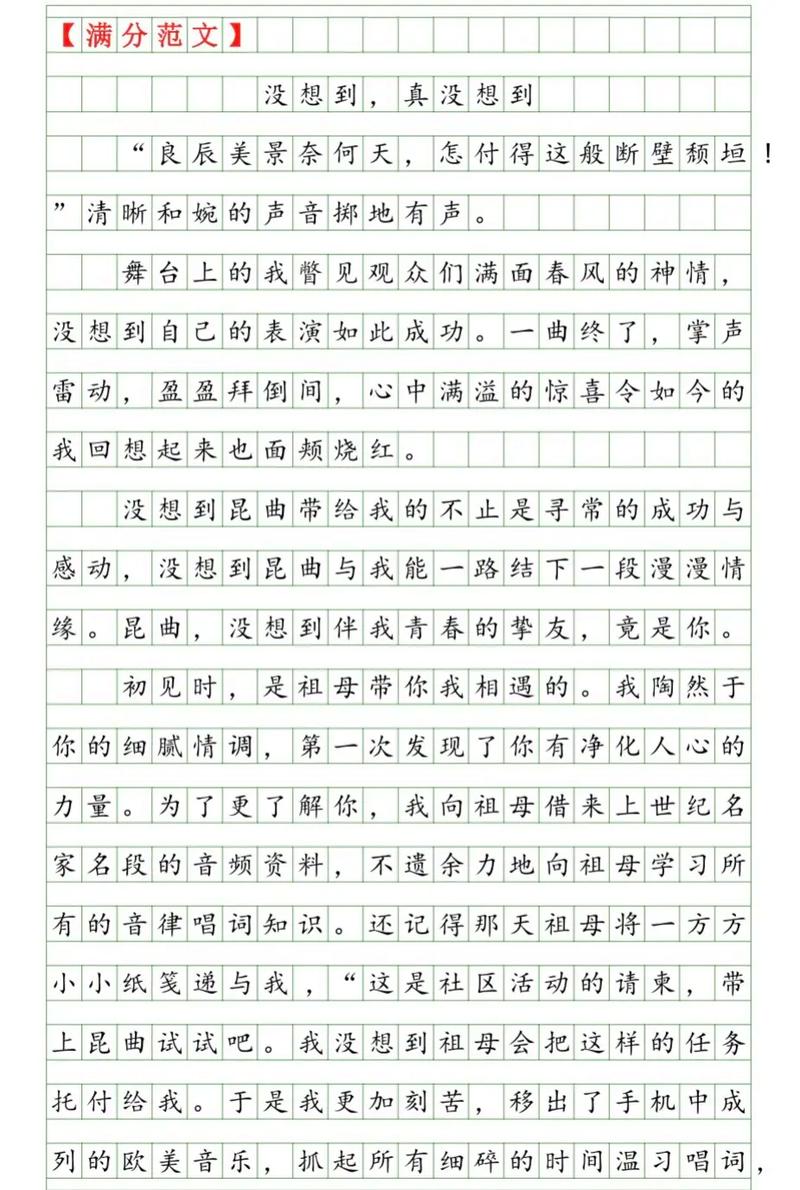 【满分范文】
没想到，真没想到
“良辰美景奈何天，怎付得这般断壁颓垣！
”清晰和婉的声音掷地有声。
舞台上的我瞥见观众们满面春风的神情，
没想到自己的表演如此成功。一曲终了，掌声
雷动，盈盈拜倒间，心中满溢的惊喜令如今的
我回想起来也面颊烧红。
没想到昆曲带给我的不止是寻常的成功与
感动，没想到昆曲与我能一路结下一段漫漫情
缘。昆曲，没想到伴我青春的挚友，竟是你。
初见时，是祖母带你我相遇的。我陶然于
你的细腻情调，第一次发现了你有净化人心的
力量。为了更了解你，我向祖母借来上世纪名
家名段的音频资料，不遗余力地向祖母学习所
有的音律唱词知识。还记得那天祖母将一方方
小小纸笺递与我，“这是社区活动的请柬，带
上昆曲试试吧。我没想到祖母会把这样的任务
托付给我。于是我更加刻苦，移出了手机中成
列的欧美音乐，抓起所有细碎的时间温习唱词，